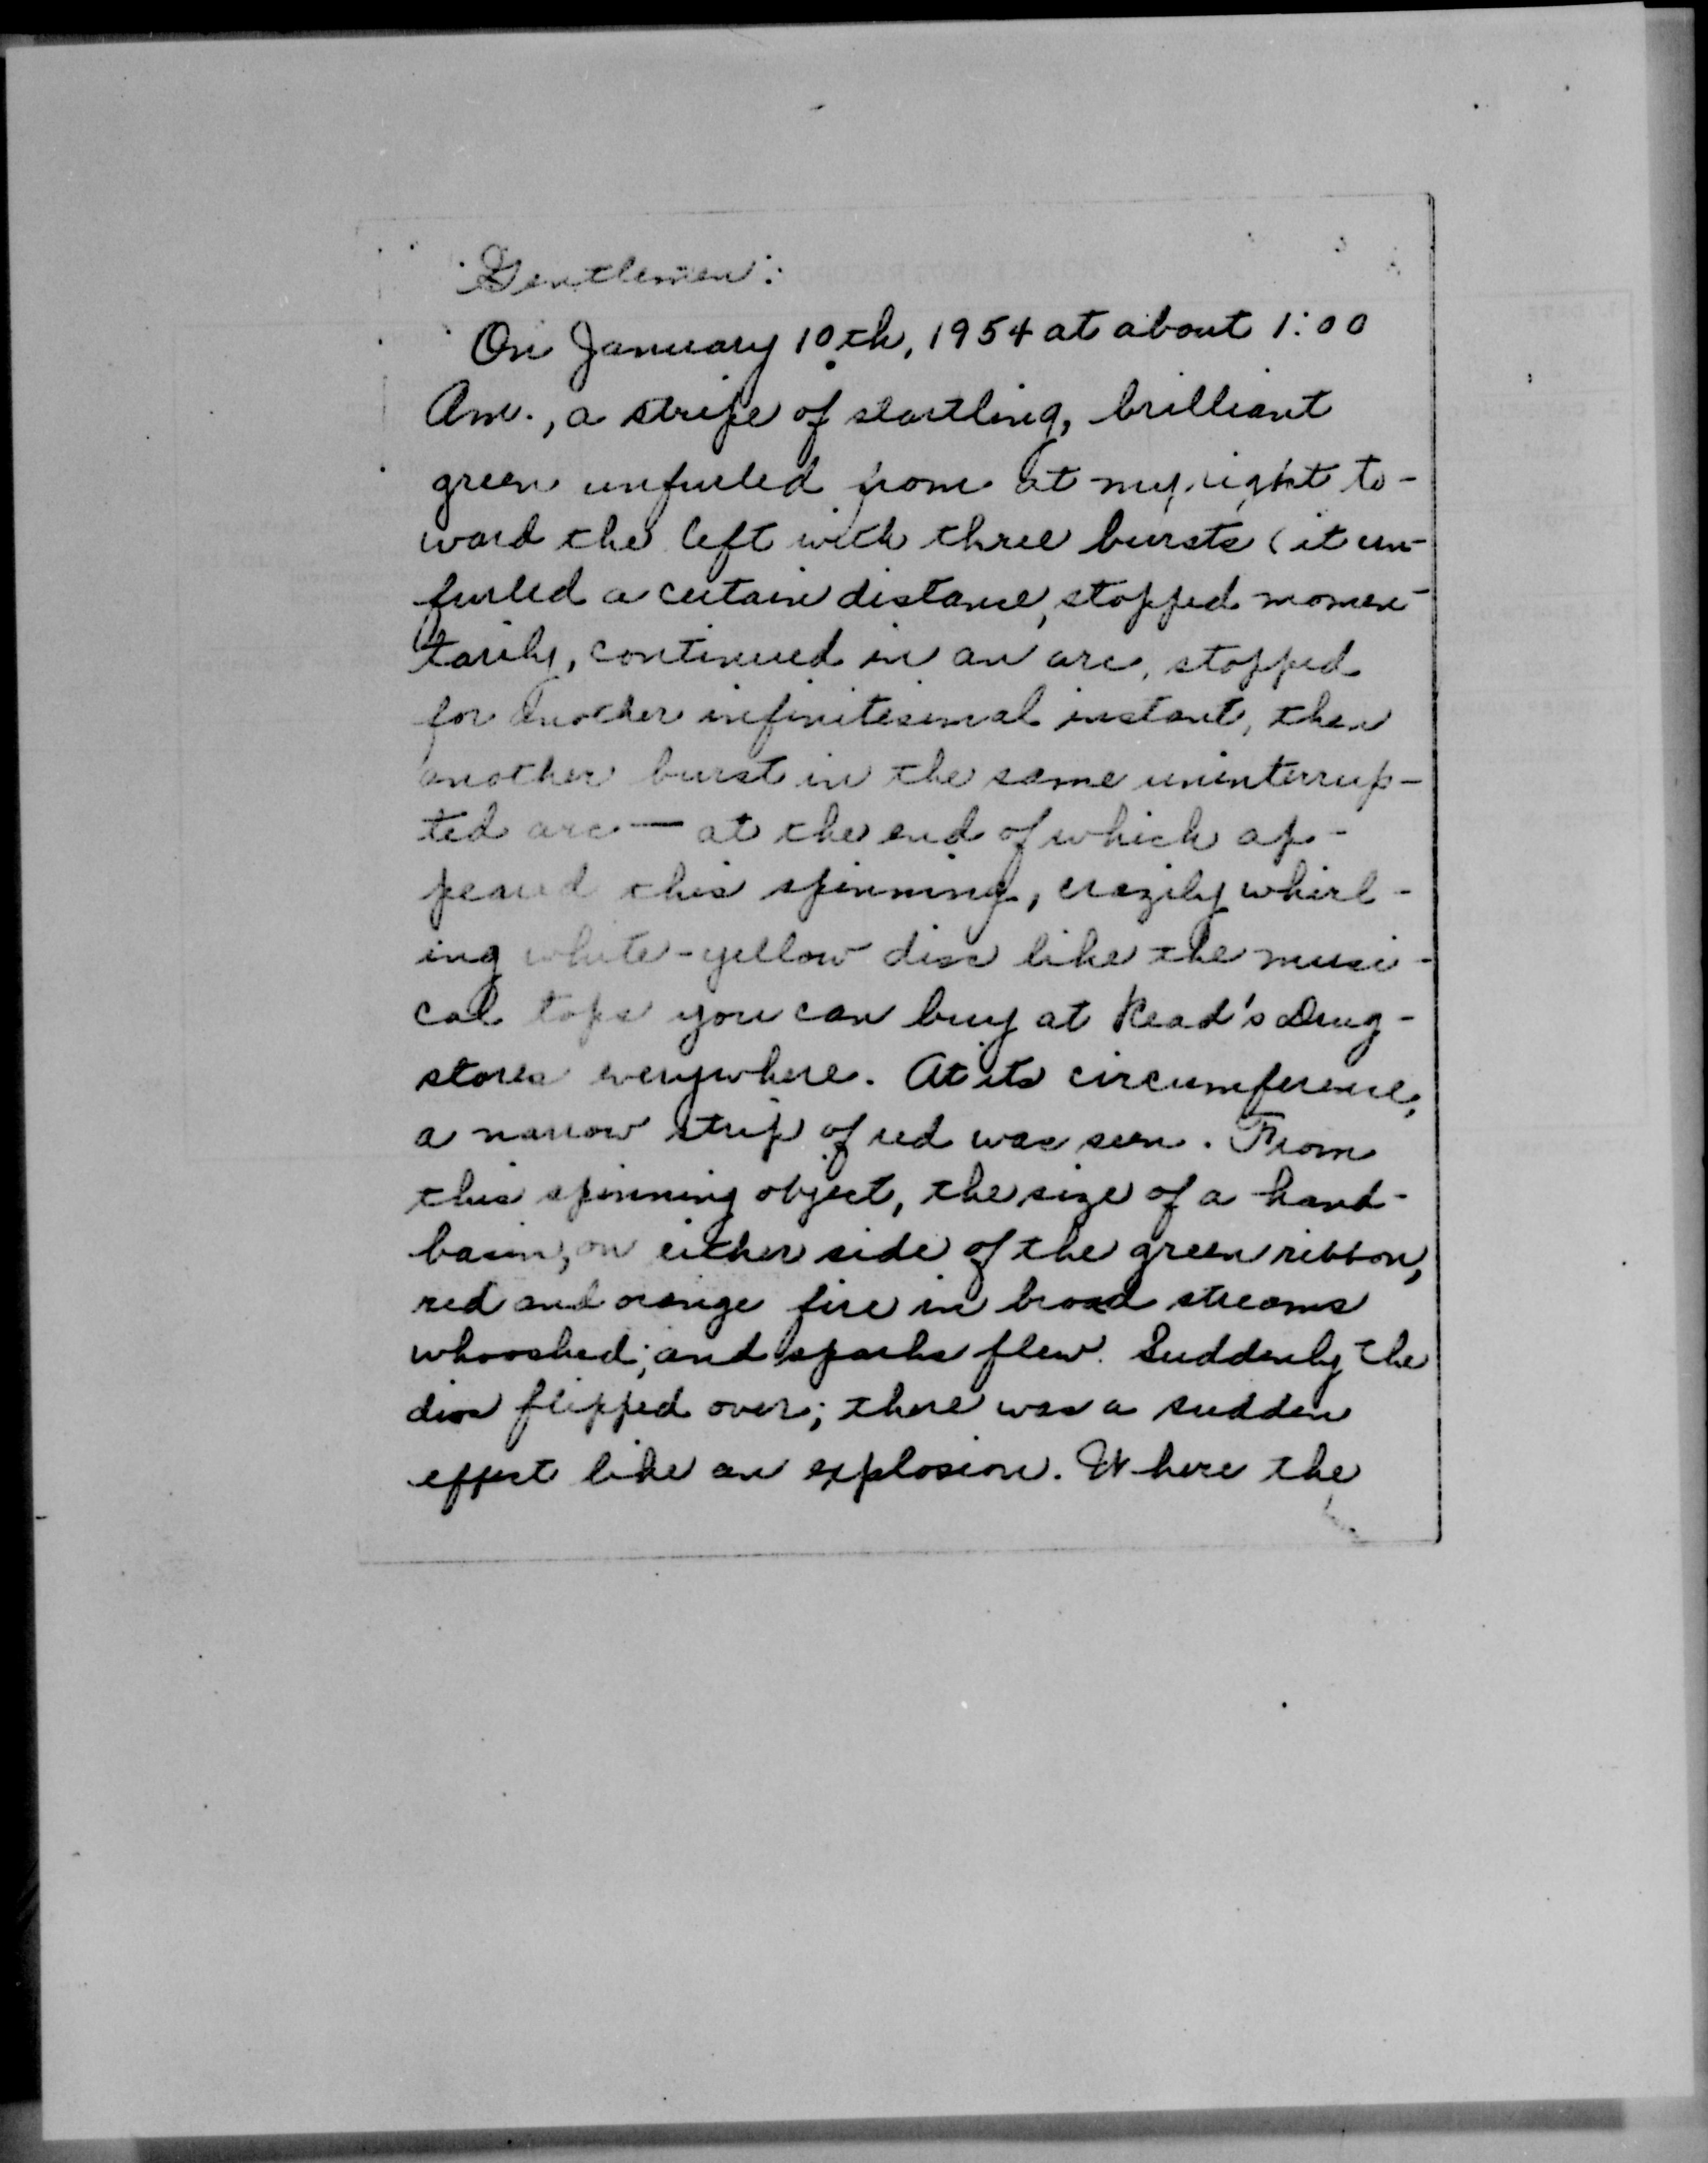 Gentlemen:
On January 10th, 1954 at about 1:00
Am., a stripe of startling, brilliant
green unfurled from at my right to-
ward the left with three bursts (it un-
furled a certain distance, stopped momen-
tarily, continued in an arc, stopped
for another infinitesimal instant, then
another burst in the same uninterrup-
ted arc — at the end of which ap-
peared this spinning, crazily whirl-
ing white-yellow disc like the musi-
cal tops you can buy at Read's Drug-
stores everywhere. At its circumference,
a narrow strip of red was seen. From
this spinning object, the size of a hand-
basin, on either side of the green ribbon,
red and orange fire in broad streams
whooshed; and sparks flew. Suddenly the
disc flipped over; there was a sudden
effect like an explosion. Where the